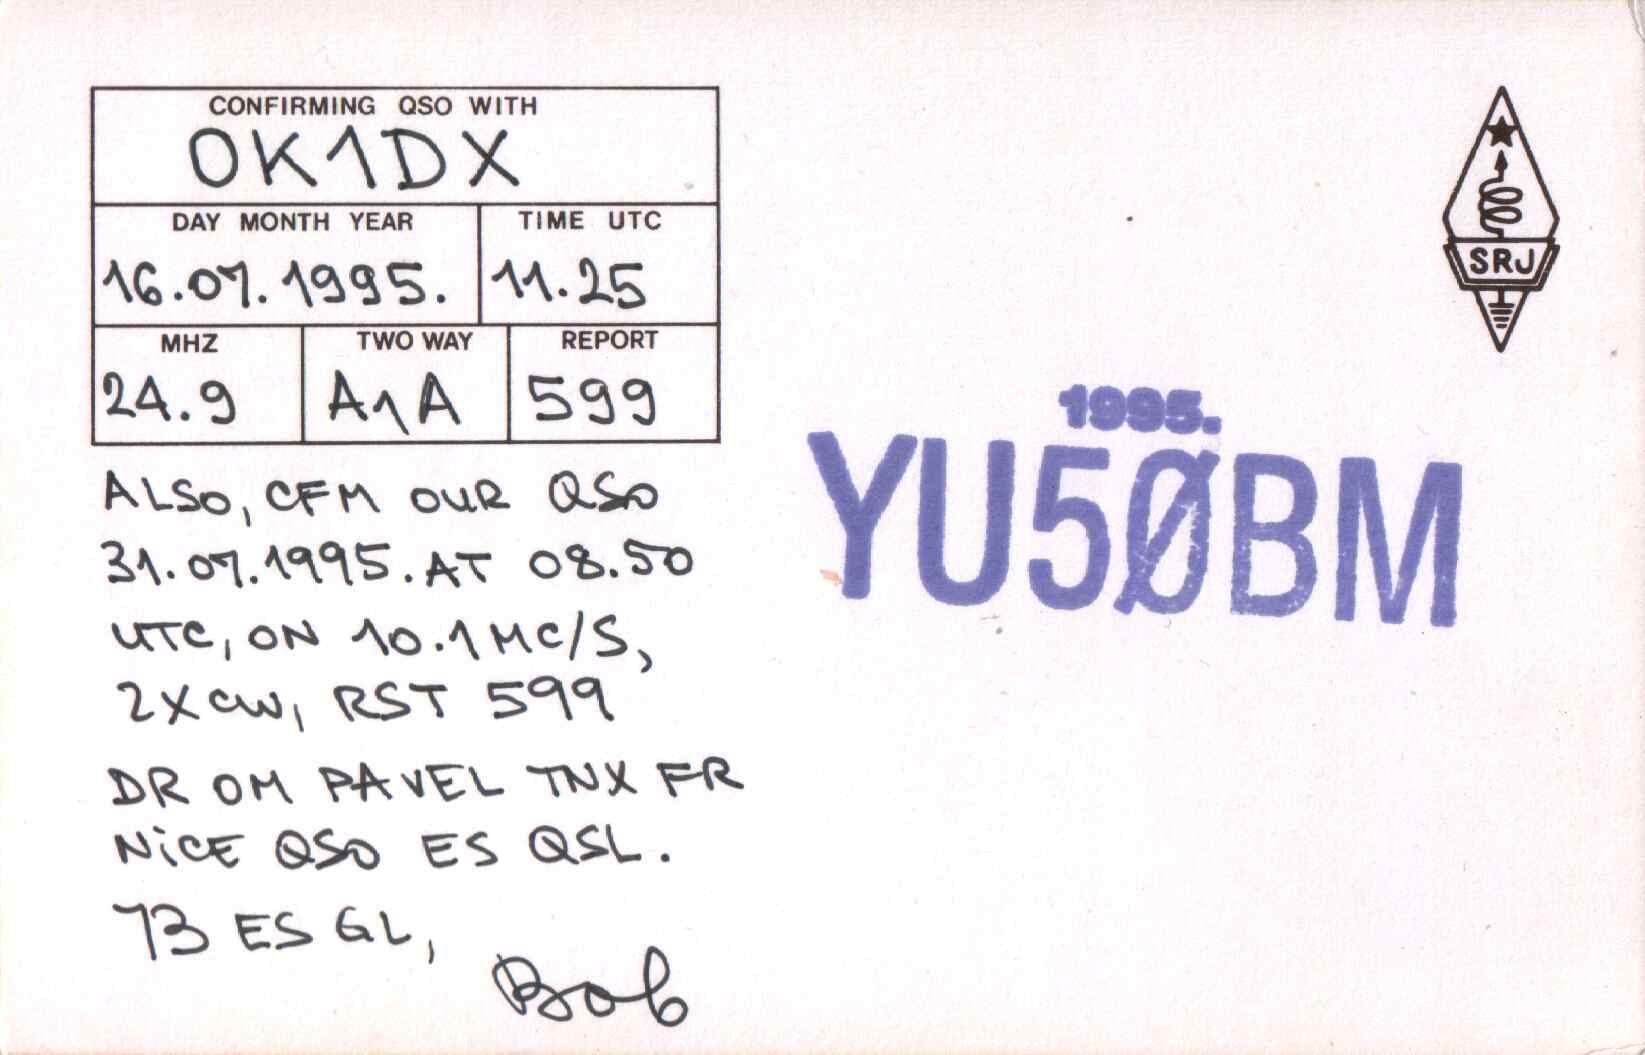 CONFIRMING QSO WITH
OK1DX
DAY MONTH YEAR
TIME UTC
16.07.1995.
11.25
MHZ
TWO WAY
REPORT
24.9
A1A
599
ALSO, CFM OUR QSO
31.07.1995. AT 08.50
UTC, ON 10.1 MC/S,
2XCW, RST 599
DR OM PAVEL TNX FR
NiCE QSO ES QSL.
73 ES GL,
Bob
SRJ
1995.
YU5ØBM